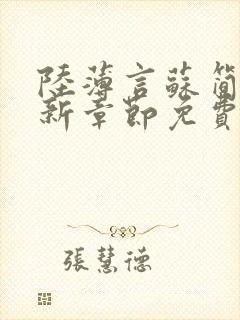 陸薄言蘇簡
新章節免費
張慧德